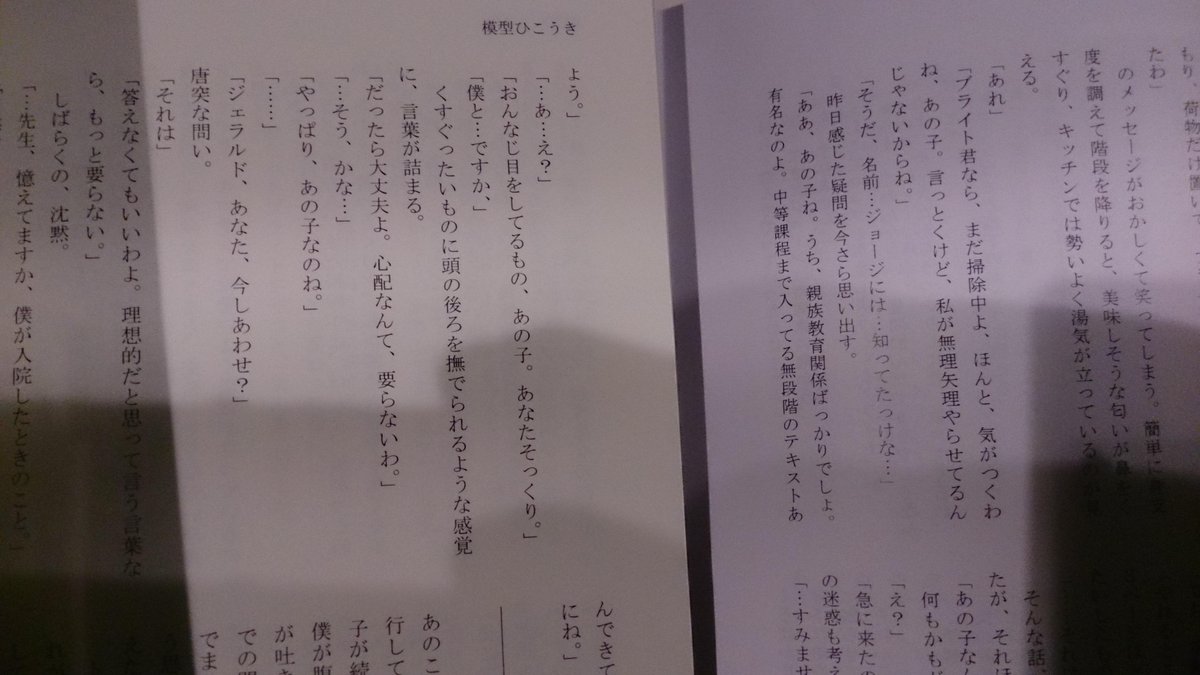 もり　荷物だけ置い
たわ」
のメッセージがおかしくて笑ってしまう。簡単に
度を調えて階段を降りると、美味しそうな匂いが鼻
すぐり、キッチンでは勢いよく湯気が立っている
える。
「あれ」
「ブライト君なら、まだ掃除中よ、ほんと、気がつくわ
ね、あの子。言っとくけど、私が無理矢理やらせてるん
じゃないからね。」
「そうだ、名前…ジョージには…知ってたっけな…」
昨日感じた疑問を今さら思い出す。
「ああ、あの子ね。うち、親族教育関係ばっかりでしょ。
有名なのよ。中等課程まで入ってる無段階のテキストあ
そんな話、
たが、それほ
「あの子なん
何もかも
「え？」
「急に来たの
の迷惑も考え
「…すみませ
模型ひこうき
よう。」
「…あ…え？」
「おんなじ目をしてるもの、あの子。あなたそっくり。」
「僕と…ですか、」
くすぐったいものに頭の後ろを撫でられるような感覚
に、言葉が詰まる。
「だったら大丈夫よ。心配なんて、要らないわ。」
「…そう、かな…」
「やっぱり、あの子なのね。」
「……」
「ジェラルド、あなた、今しあわせ？」
唐突な問い。
「それは」
「答えなくてもいいわよ。理想的だと思って言う言葉な
ら、もっと要らない。」
しばらくの、沈黙。
「…先生、憶えてますか、僕が入院したときのこと。」
んできて
にね。」
あのこ
行して
子が続
僕が腹
が吐き
での
でま